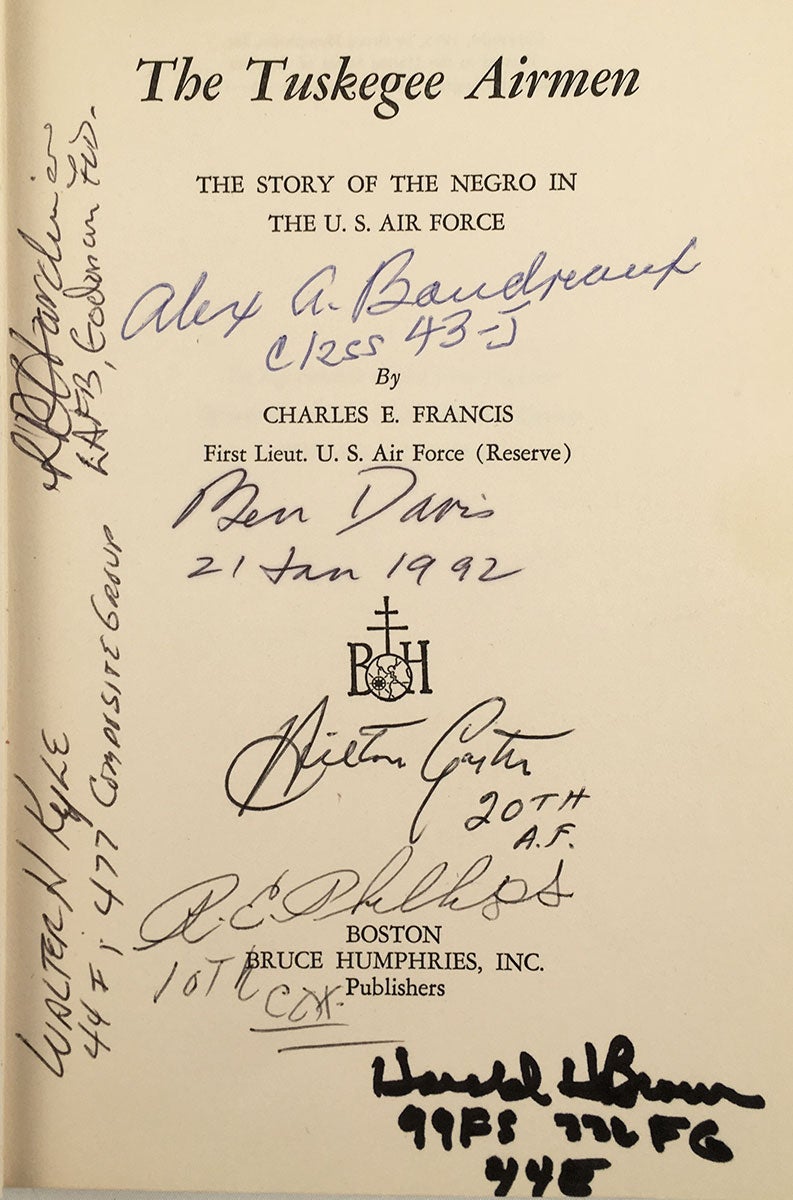 The Tuskegee Airmen
THE STORY OF THE NEGRO IN
THE U. S. AIR FORCE
Alex A. Boudreaux
Class 43-J
By
CHARLES E. FRANCIS
First Lieut. U. S. Air Force (Reserve)
Ben Davis
21 Jan 1992
BH
Hilton Carter
20TH
A.F.
R. E. Phillips
BOSTON
BRUCE HUMPHRIES, INC.
10TH
Publishers
Harold H Brown
99FS 332 FG
44E
WALTER H Kyle
44 I; 477 COMPOSITE GROUP
LAFB, Godman FLD.